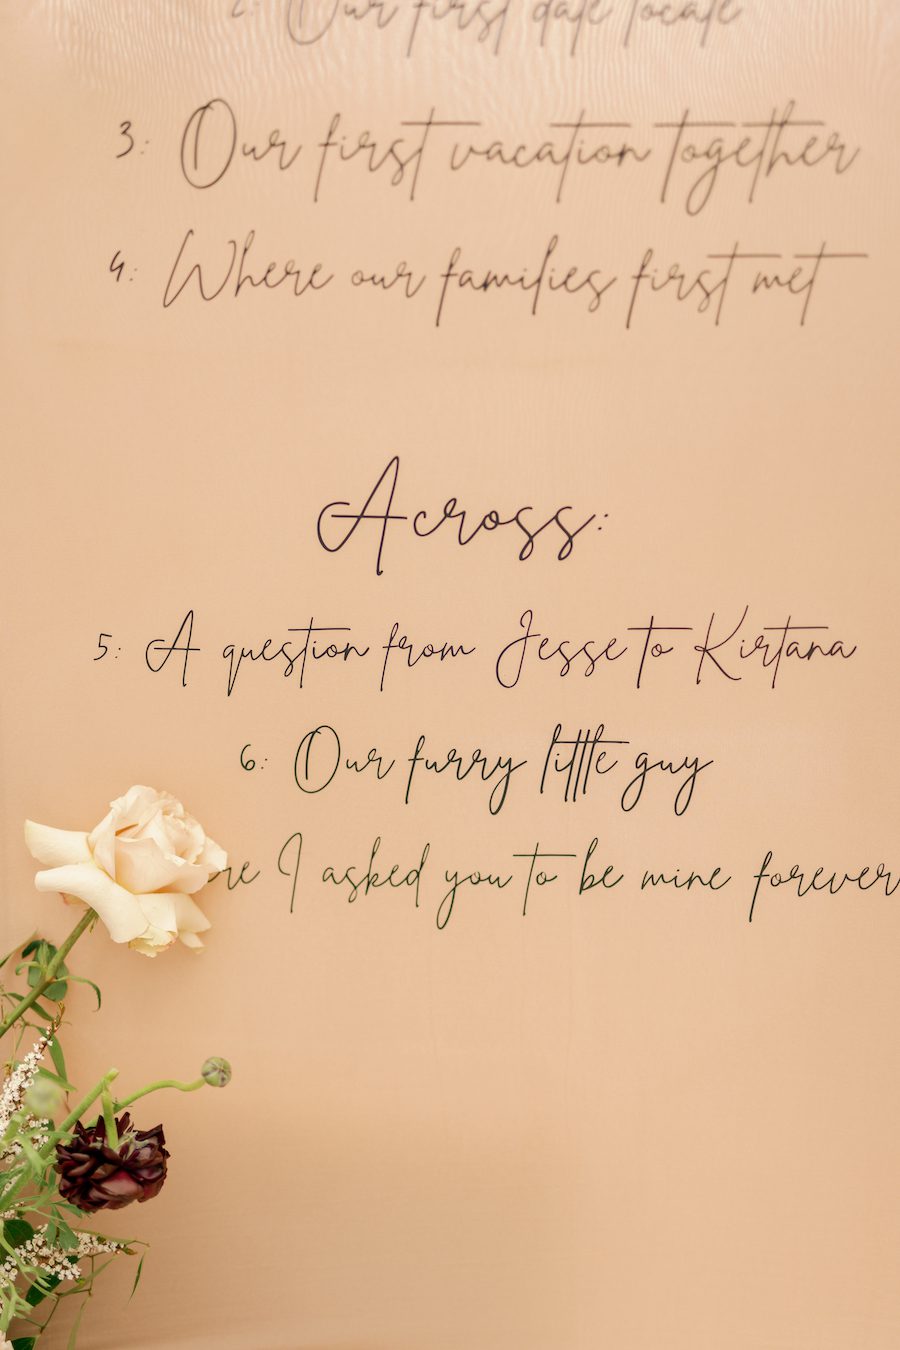 2: Our first date locale
3: Our first vacation together
4: Where our families first met
Across:
5: A question from Jesse to Kirtana
6: Our furry little guy
I asked you to be mine forever